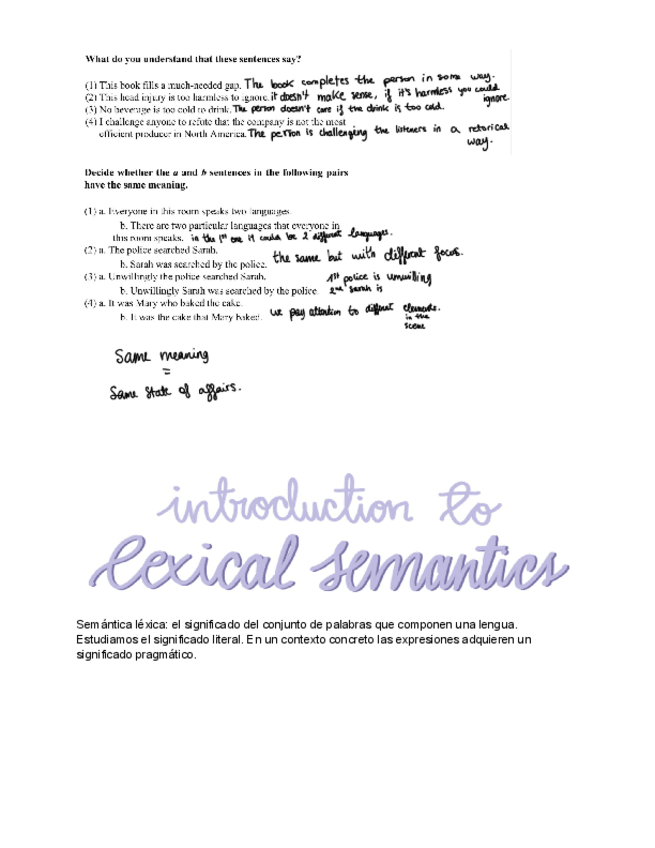 What do you understand that these sentences say?
(1) This book fills a much-needed gap. The book completes the person in some way.
(2) This head injury is too harmless to ignore. it doesn't make sense, if it's harmless you could ignore.
(3) No beverage is too cold to drink. The person doesn't care if the drink is too cold.
(4) I challenge anyone to refute that the company is not the most
efficient producer in North America. The person is challenging the listeners in a retorical way.
Decide whether the a and b sentences in the following pairs
have the same meaning.
(1) a. Everyone in this room speaks two languages.
b. There are two particular languages that everyone in
this room speaks. in the 1st one it could be 2 different languages.
(2) a. The police searched Sarah.
b. Sarah was searched by the police. the same but with different focus.
(3) a. Unwillingly the police searched Sarah. 1st police is unwilling
b. Unwillingly Sarah was searched by the police. 2nd Sarah is
(4) a. It was Mary who baked the cake.
b. It was the cake that Mary baked. we pay attention to different elements. in the scene
Same meaning
=
Same State of affairs.
introduction to
lexical semantics
Semántica léxica: el significado del conjunto de palabras que componen una lengua.
Estudiamos el significado literal. En un contexto concreto las expresiones adquieren un
significado pragmático.